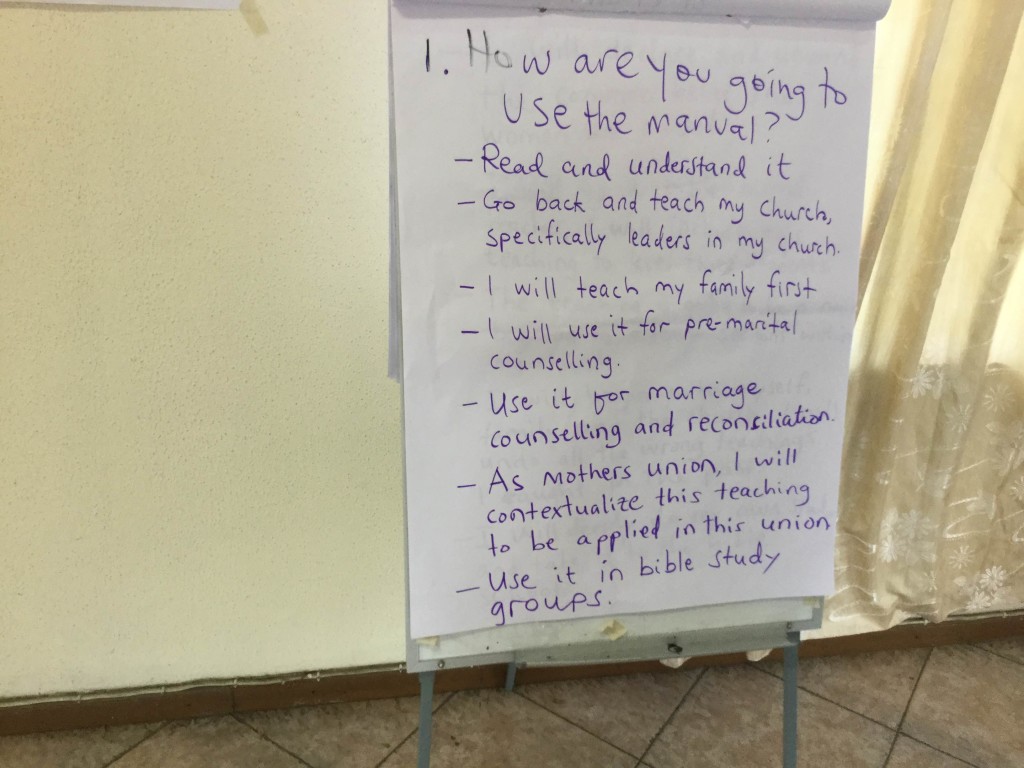 1. How are you going to
Use the manual?
- Read and understand it
- Go back and teach my church,
specifically leaders in my church.
- I will teach my family first
- I will use it for pre-marital
counselling.
- Use it for marriage
counselling and reconsiliation.
- As mothers union, I will
contextualize this teaching
to be applied in this union
- Use it in bible study
groups.